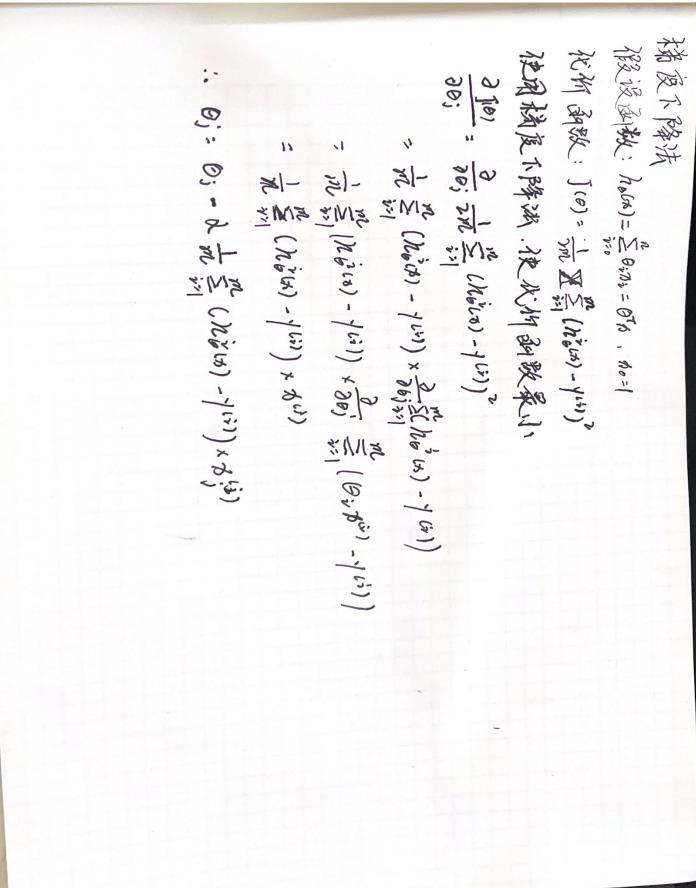 梯度下降法
假设函数: h_θ(x) = ∑_{i=0}^{n} θ_i x_i = θ^T x, x_0=1
代价函数: J(θ) = 1/2m ∑_{i=1}^{m} (h_θ^i(x) - y^(i))^2
使用梯度下降法,使代价函数最小
∂J(θ)/∂θ_j = ∂/∂θ_j 1/2m ∑_{i=1}^{m} (h_θ^i(x) - y^(i))^2
= 1/m ∑_{i=1}^{m} (h_θ^i(x) - y^(i)) × ∂/∂θ_j ∑_{i=1}^{m} (h_θ^i(x) - y^(i))
= 1/m ∑_{i=1}^{m} (h_θ^i(x) - y^(i)) × ∂/∂θ_j ∑_{i=1}^{m} (θ_i x^(i) - y^(i))
= 1/m ∑_{i=1}^{m} (h_θ^i(x) - y^(i)) × x^(i)
∴ θ_j = θ_j - α 1/m ∑_{i=1}^{m} (h_θ^i(x) - y^(i)) × x_j^(i)